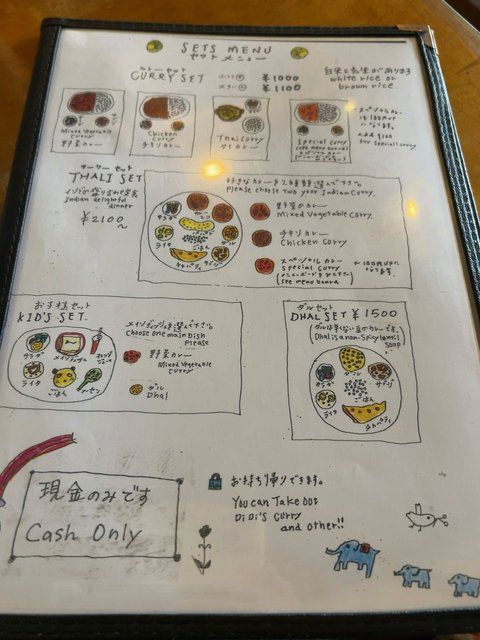 SETS MENU
セットメニュー
カレーセット
CURRY SET
¥1000
¥1100
白米と玄米があります
white rice or
brown rice
Mixed Vegetable
Curry
野菜カレー
Chicken
Curry
チキンカレー
Thai Curry
タイカレー
Special Curry
(see menu board)
スペシャルカレー
は100円UP
になります。
Add ¥100
for Special Curry
ターリーセット
THALI SET
インドの盛り合わせ定食
Indian delightful
dinner
¥2100～
好きなカレーを2種類選んで下さい
Please choose two your Indian Curry.
カレー
ライタ
ダル
サブジ
ごはん
チャパティ
野菜カレー
Mixed Vegetable Curry
チキンカレー
Chicken Curry
スペシャルカレー
Special Curry
(see menu board)
～100円UPに
なります。
お子様セット
KID'S SET
メインディッシュを選んで下さい
choose one main Dish
Please
サラダ
メインディッシュ
ライタ
ごはん
野菜カレー
Mixed Vegetable
Curry
ダル
Dhal
ダルセット
DHAL SET ¥1500
ダルは辛くない豆のカレーです。
Dhal is a non-Spicy lentil
Soup
ダル
サラダ
サブジ
ライタ
ごはん
チャパティ
現金のみです
Cash Only
お持ち帰りできます。
You can Take out
DiDi'S Curry
and other!!